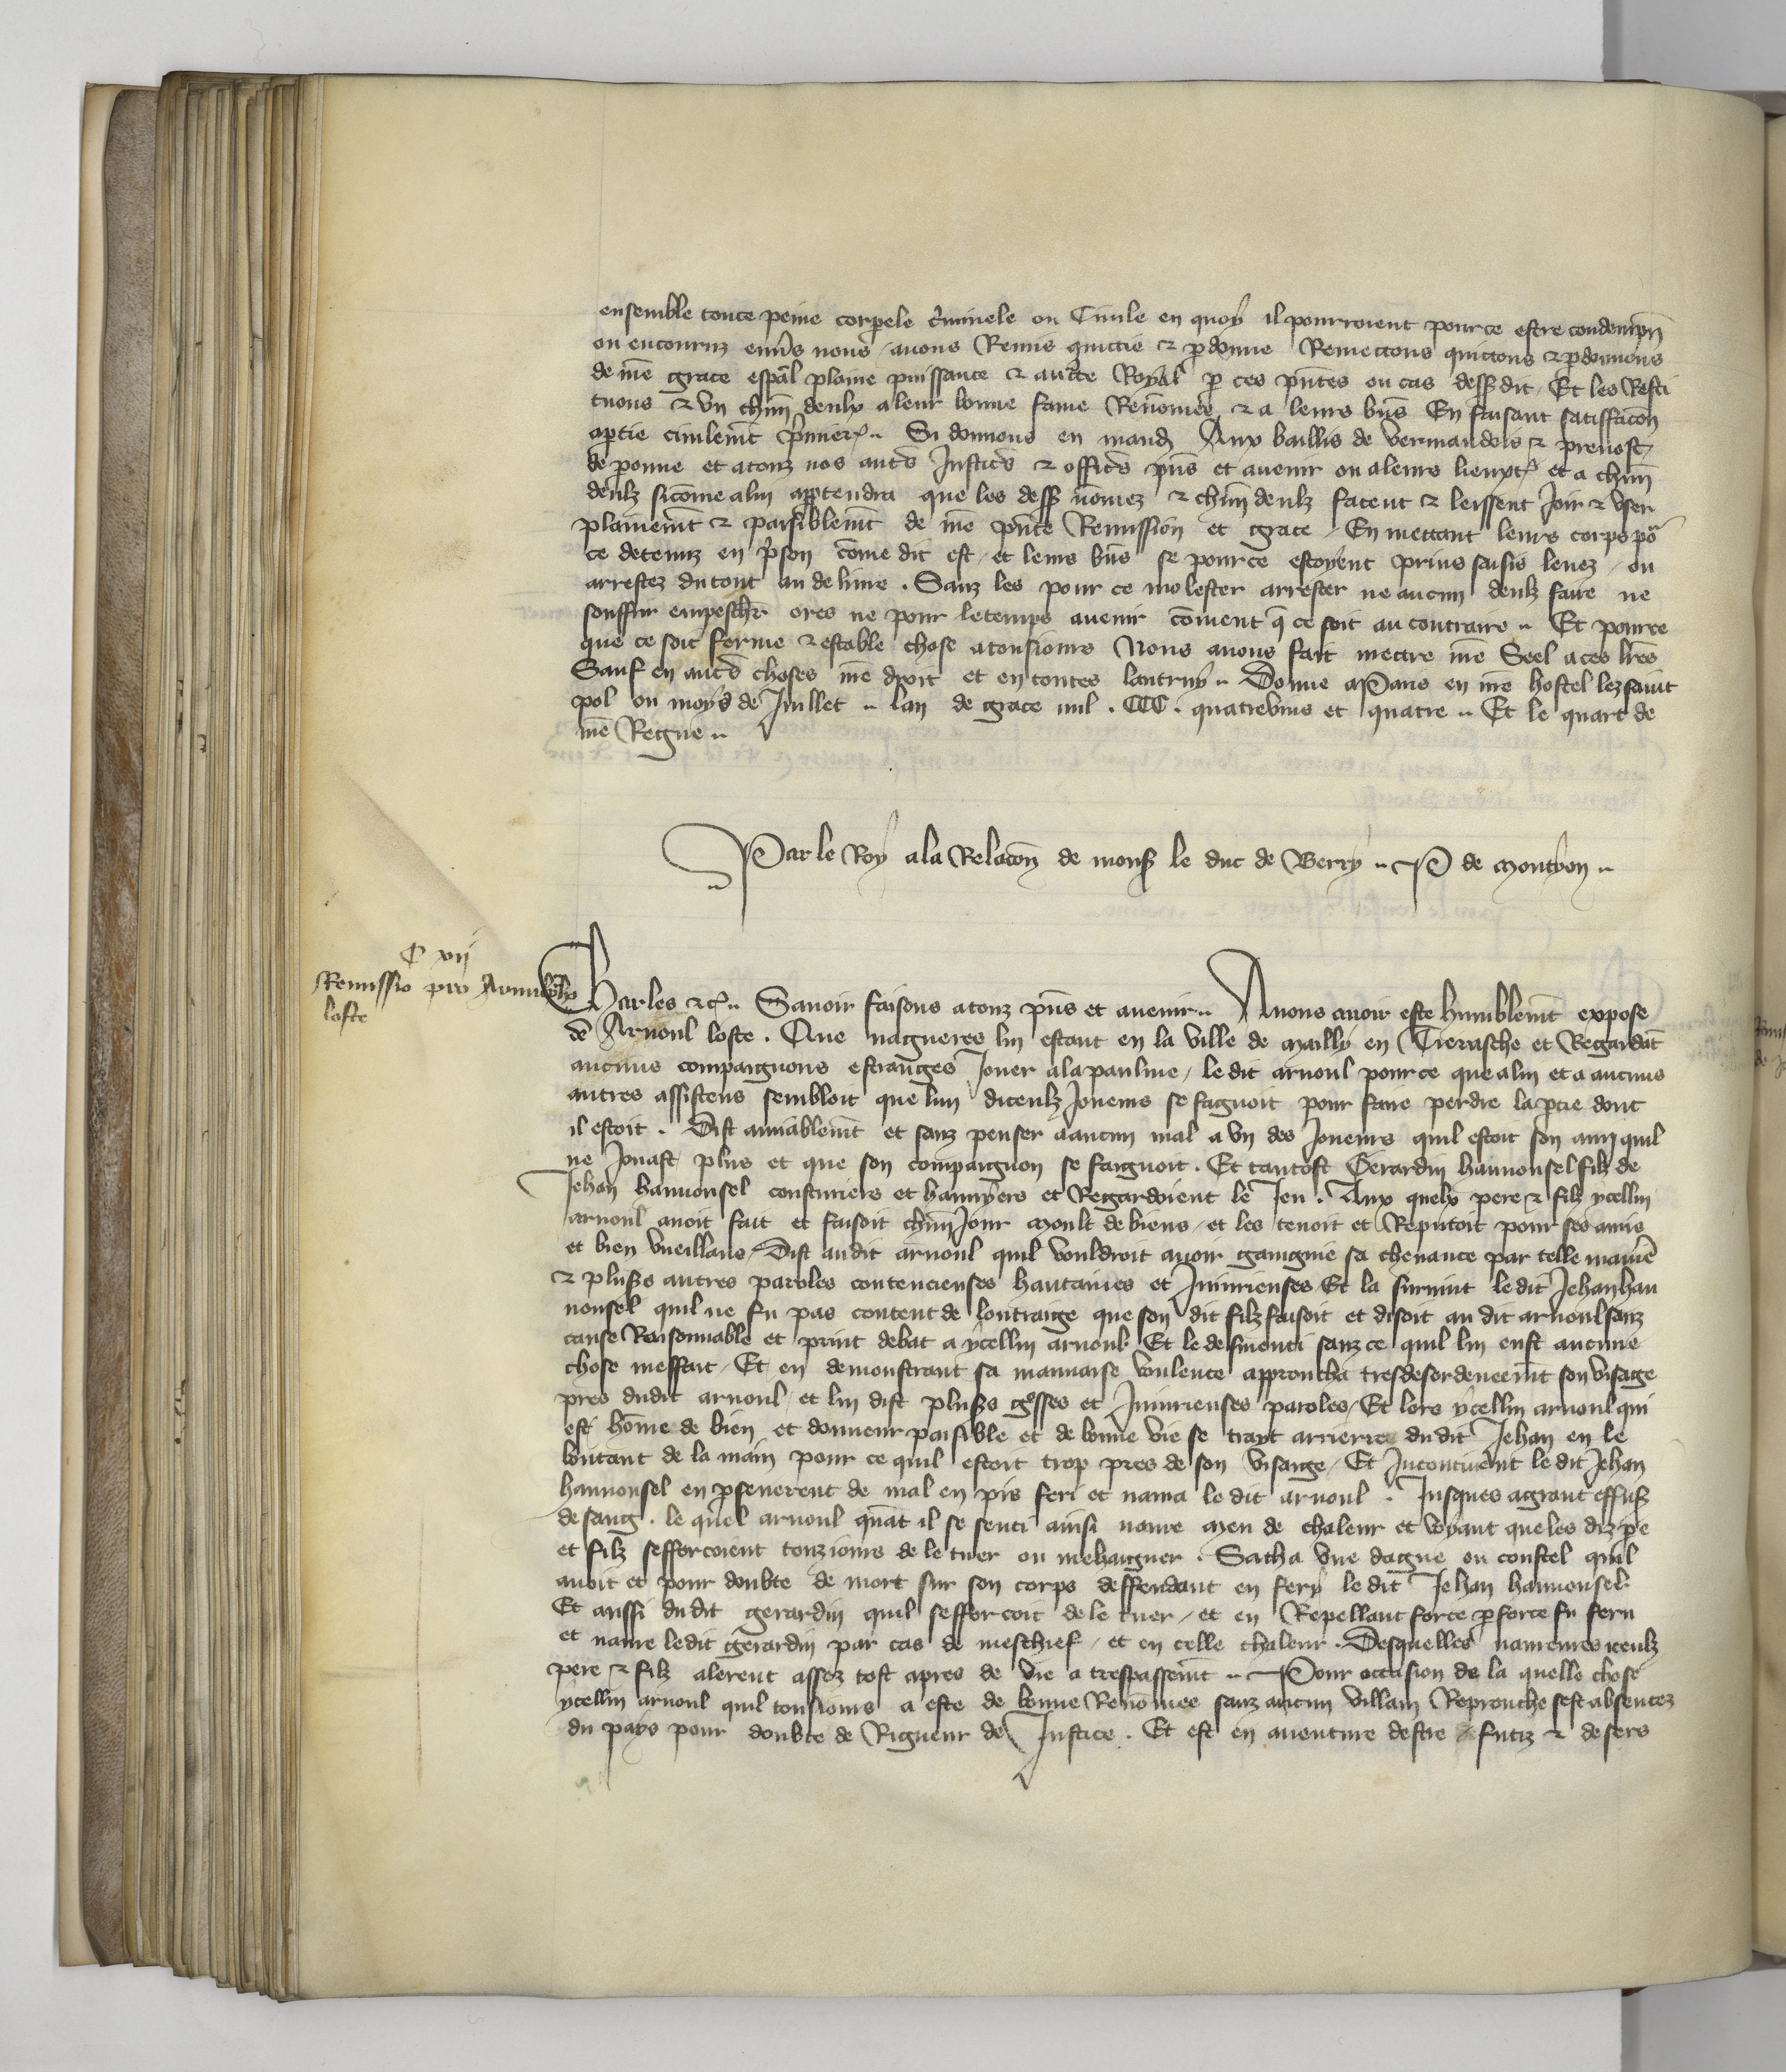 ensemble toute peine corporele criminele ou Civile en quoy il pourroient pource estre condempn̄
ou encouruz enūs nous / avons Remis quictie & pdonne Remectons quictons & pdonnons
de nr̄e grace esp̄al plaine puissance & aucte Royal p ces pn̄tes ou cas dess dit / Et les Resti
tuons & vn chūn deulx a leur bonne fame Renōmee & a leurs biēs En faisant satisffacōn
a ptie civilemt p̄mier̄ .. Si donnons en mand̄ Aux baillis de vermandois & prevost
de peronne et a touz nos autr̄s Justic̄s & offic̄s pn̄s et avenir ou a leurs lieuxt̄ et a chūn
deulz sicōme a lui app̄tendra que les dess nōmez & chūn deulz facent & leissent Joir & vser
plainemt & paisiblemt de nr̄e pn̄te Remission et grace / En mettant leurs corps po᷑
ce detenuz en p̄son cōme dit est / et leurs biēs se pource estoyent prins saisis levez / ou
arrestez du tout au delivre . Sanz les pour ce molester arrester ne aucun deulz faire ne
souffrir empeschr̄ ores ne pour le temps avenir cōment q̄ ce soit au contraire .. Et pource
que ce soit ferme & estable chose a tousiours Nous avons fait mectre nr̄e Seel a ces lr̄es
Sauf en autr̄s choses nr̄e droit et en toutes lautruy .. Donne a Paris en nr̄e hostel lez saint
pol ou moys de Juillet .. lan de grace mil . CCC . quatrevins et quatre .. Et le quart de
nr̄e Regne ..
Par le Roy a la Relacōn de mons le duc de Berry .. P de Montyon ..
C xvij
Remissio pro Arnulpho
loste
Charles &c̄ .. Savoir faisons a touz pn̄s et avenir .. A nous avoir este humblemt expose
de Arnoul loste . Que nagueres lui estant en la ville de mailly en Tierasche et Regardāt
aucuns compaignons estranges Jouer a la paulme / le dit arnoul pource que a lui et a aucuns
autres assistens sembloit que lun diceulz Joueurs se fagnoit pour faire perdre la ptie dont
il estoit . Dist amiablemt et sanz penser a aucun mal a vn des Joueurs quil estoit son ami quil
ne Jouast plus et que son compaignon se faignoit . Et tantost Gerardin hanonsel filz de
Jehan hanonsel cousturiers et hanoyers et Regardoient le Jeu . Aux quelx pere & filz ycellui
arnoul avoit fait et faisoit chūn Jour moult de biens / et les tenoit et Reputoit pour ses amis
et bien vueillans / Dist audit arnoul quil vouldroit avoir gaingnie sa chevance par telle manie᷑
& pluss autres paroles contencieuses hautaines et Iniurieuses Et la survint ledit Jehan han
nonsel quil ne fu pas content de loutraige que son dit filz faisoit et disoit au dit arnoul sanz
cause Raisonnable et print debat a ycellui arnoul Et le desmenti sanz ce quil lui eust aucune
chose meffait / Et en demonstrant sa mauvaise voulente approucha tresdesordeneemt son visage
pres dudit arnoul / et lui dist pluss gosses et Iniurieuses paroles / Et lors ycellui arnoul qui
est hōme de bien et donneur paisible et de bonne vie se trayt arrierre dudit Jehan en le
boutant de la main pour ce quil estoit trop pres de son visaige / Et Incontinent le dit Jehan
hannonsel en pseverent de mal en pis feri et navra le dit arnoul . Jusques a grant effus
de sang . le quel arnoul quāt il se senti ainsi navre meu de chaleur et voyant que les diz pe
et filz sefforcoient touziours de le tuer ou mehaigner . Sacha vne dague ou coustel quil
avoit et pour doubte de mort sur son corps deffendant en fery le dit Jehan hannonsel
Et aussi dudit gerardin quil sefforcoit de le tuer / et en Repellant force p force fu feru
et navre ledit gerardin par cas de meschief / et en celle chaleur . Desquelles navreures iceulz
pere & filz alerent assez tost apres de vie a trespassemt .. Pour occasion de la quelle chose
ycellui arnoul quil tousiours a este de bonne Renōmee sanz aucun villain Reprouche sest absentez
du pays pour doubte de Rigueur de Justice . Et est en aventure destre futiz & desers